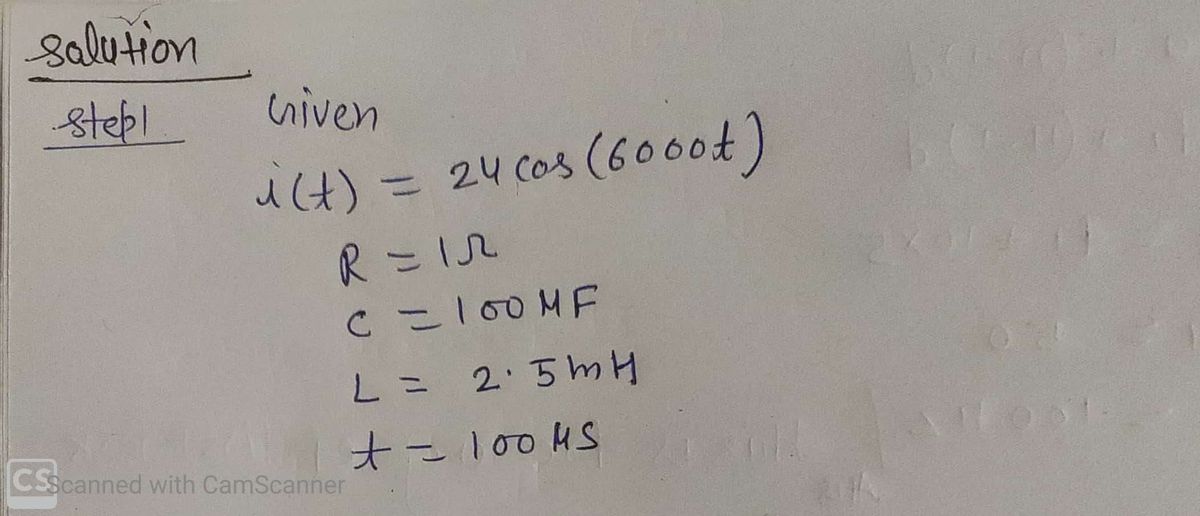 solution
step1 Given
i(t) = 24 cos (6000t)
R = 1Ω
C = 100 μF
L = 2.5 mH
t = 100 μS
CS Scanned with CamScanner